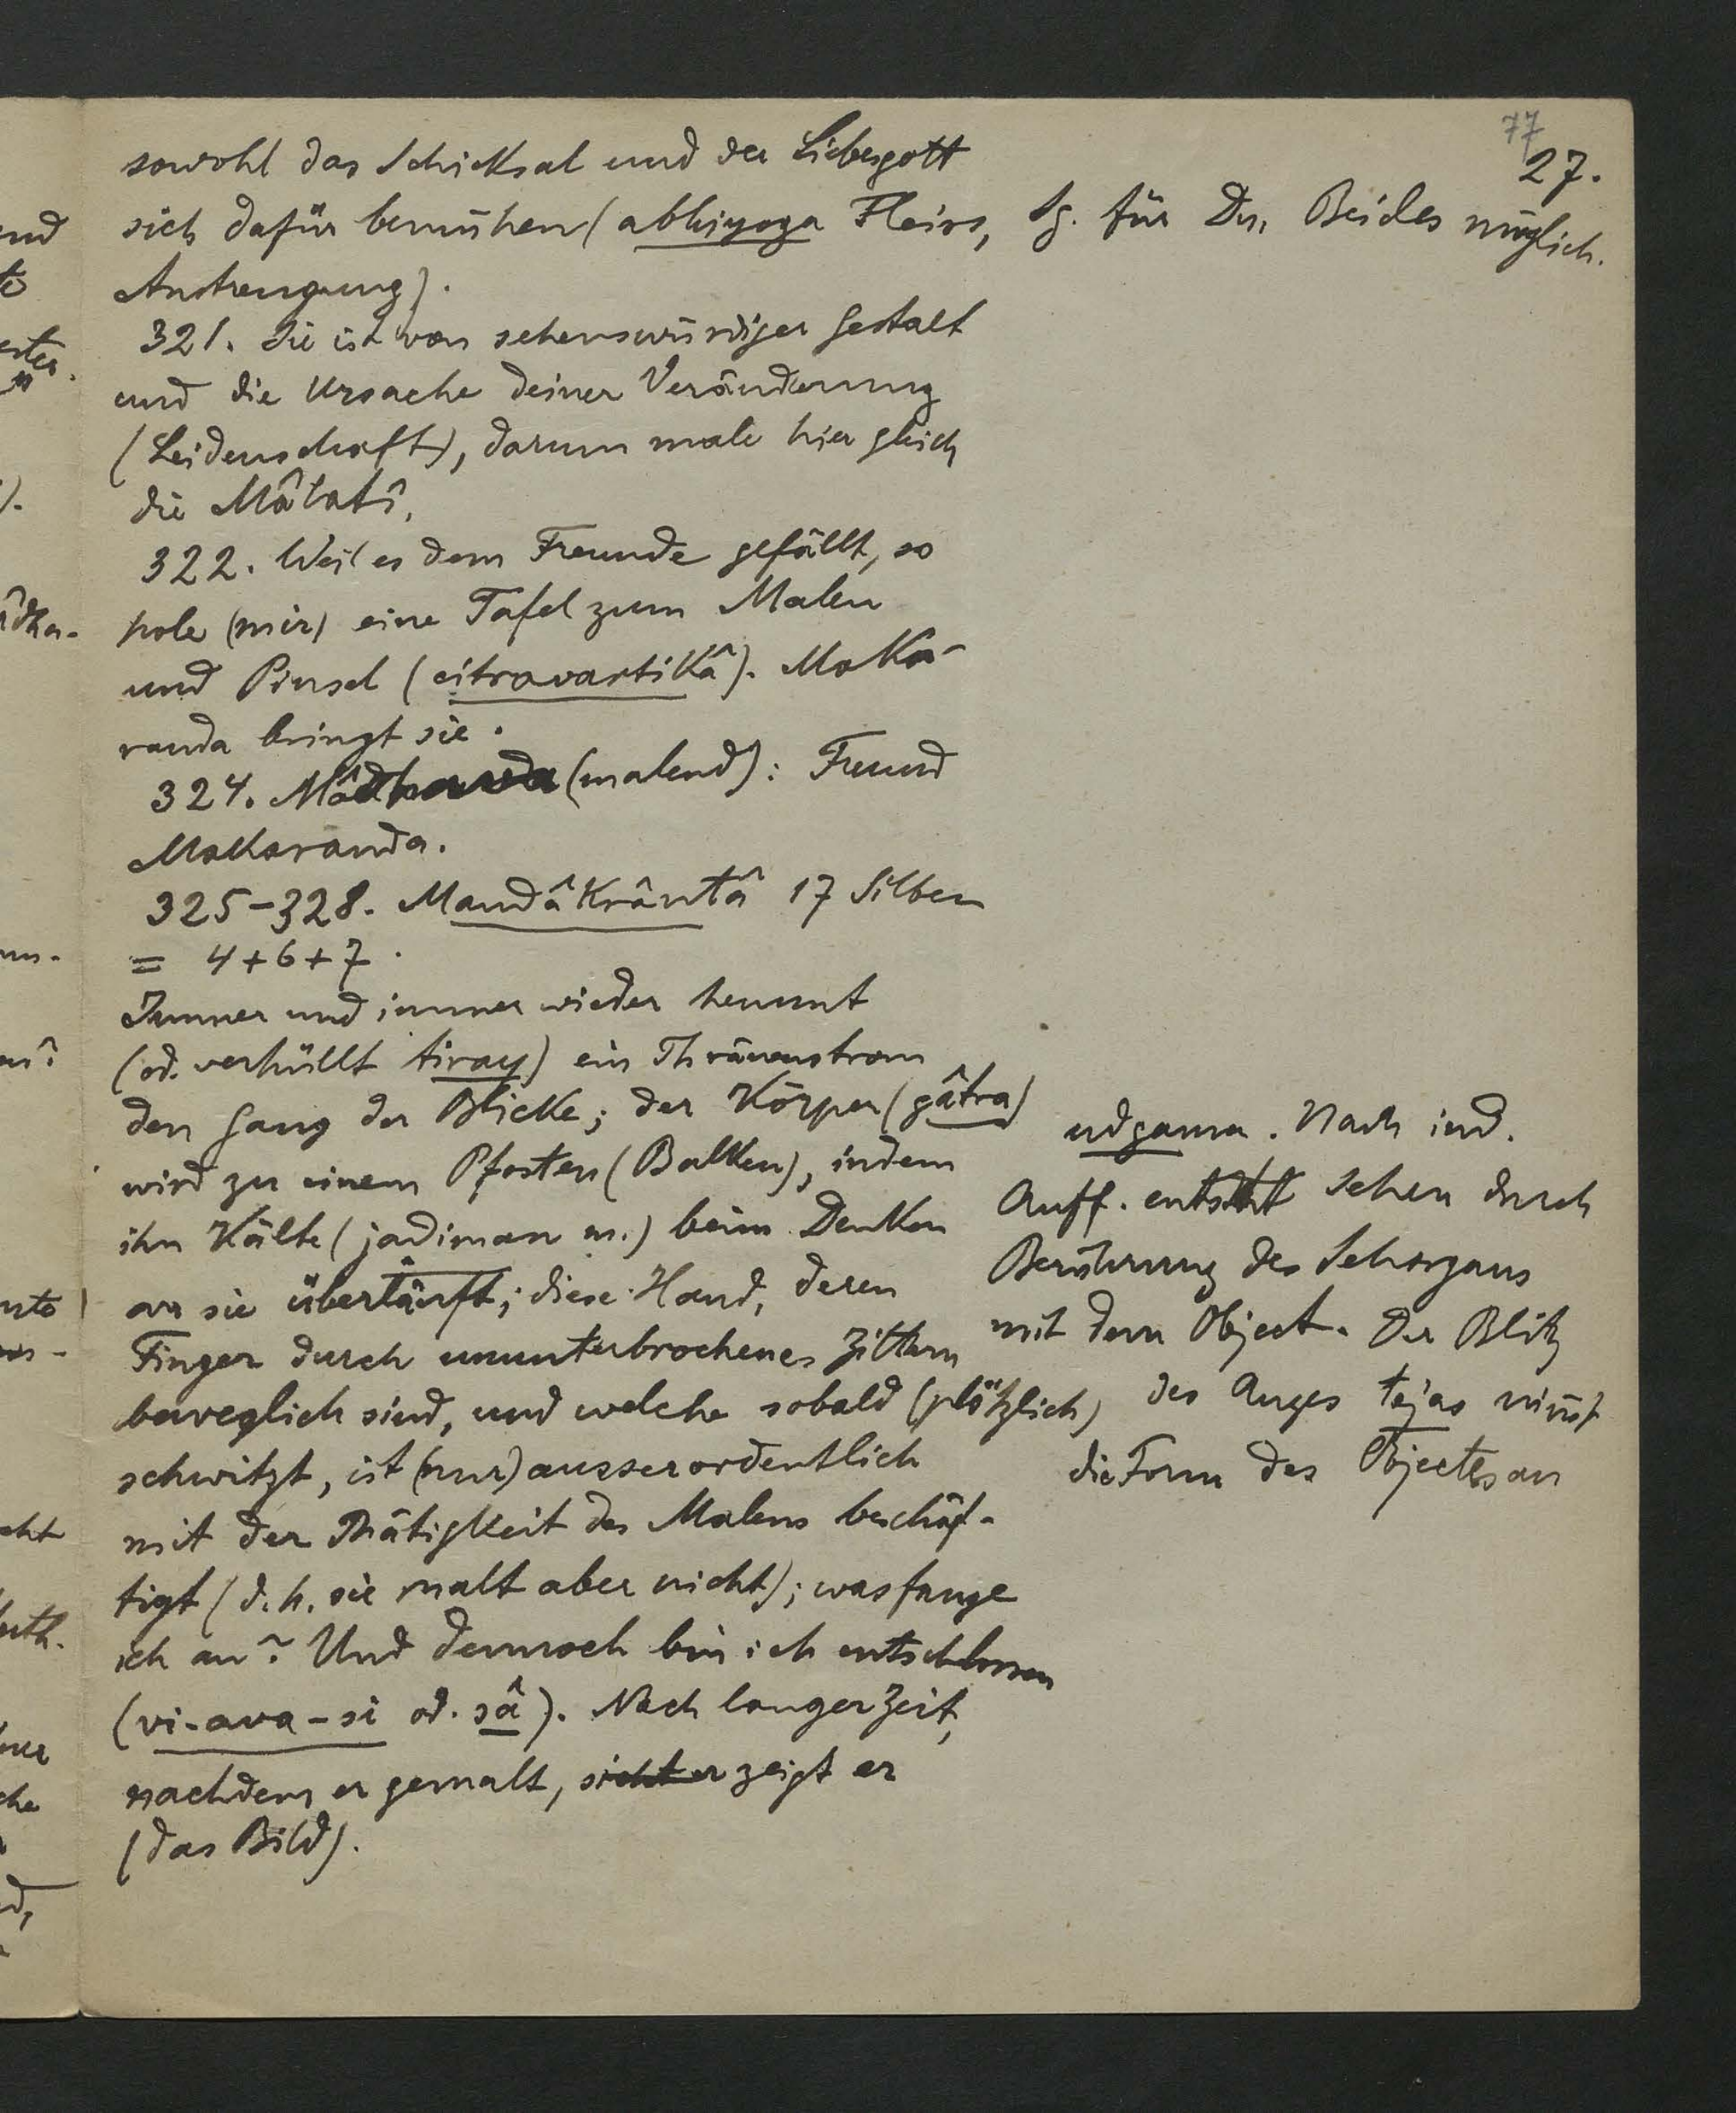 77
27.
sowohl das Schicksal und der Liebesgott
sich dafür bemühen (abhiyoga Fleiss,
Anstrengung).
Sg. für Du, Beides möglich.
321. Sie ist von sehenswürdiger Gestalt
und die Ursache deiner Veränderung
(Leidenschaft), darum male hier gleich
die Mâlatî.
322. Weil es dem Freunde gefällt, so
hole (mir) eine Tafel zum Malen
und Pinsel (citravartikâ). Maka-
randa bringt sie.
324. Mâdhava (malend): Freund
Makaranda.
325-328. Mandâkrântâ 17 Silben
= 4+6+7.
Immer und immer wieder hemmt
(od. verhüllt tiray) ein Thränenstrom
den Gang der Blicke; der Körper (gâtra)
wird zu einem Pfosten (Balken), indem
ihn Kälte (jadiman m.) beim Denken
an sie überläuft; diese Hand, deren
Finger durch ununterbrochenes Zittern
beweglich sind, und welche sobald (plötzlich)
schwitzt, ist (nur) ausserordentlich
mit der Thätigkeit des Malens beschäf-
tigt (d.h. sie malt aber nicht); was fange
ich an? Und dennoch bin ich entschlossen
(vi-ava-si od. sâ). Nach langer Zeit,
nachdem er gemalt, sieht er zeigt er
(das Bild).
udgama. Nach ind.
Auff. entsteht Sehen durch
Berührung des Sehorgans
mit dem Object. Der Blitz
des Auges tejas nimt
die Form des Objectes an